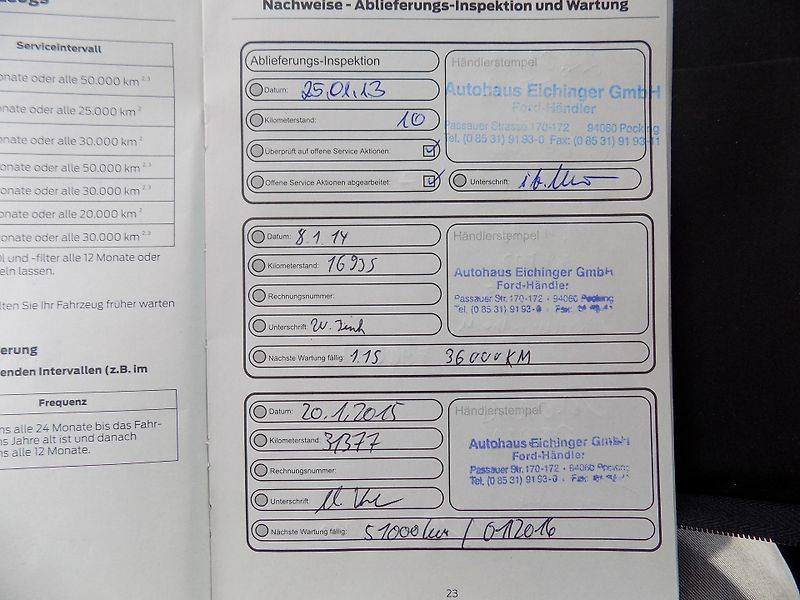 Serviceintervall
onate oder alle 50.000 km 2,3
onate oder alle 25.000 km 2
onate oder alle 30.000 km 2
onate oder alle 50.000 km 2,3
onate oder alle 30.000 km 2,3
onate oder alle 20.000 km 2
onate oder alle 30.000 km 2,3
l und -filter alle 12 Monate oder
eln lassen.
lten Sie Ihr Fahrzeug früher warten
erung
enden Intervallen (z.B. im
Frequenz
ns alle 24 Monate bis das Fahr-
ns Jahre alt ist und danach
ns alle 12 Monate.
Nachweise - Ablieferungs-Inspektion und Wartung
Ablieferungs-Inspektion
Datum: 25.01.13
Kilometerstand: 10
Überprüft auf offene Service Aktionen:
Offene Service Aktionen abgearbeitet:
Händlerstempel
Autohaus Eichinger GmbH
Ford-Händler
Passauer Strasse 170-172 94060 Pocking
Tel. (0 85 31) 91 93-0 Fax: (0 85 31) 91 93-11
Unterschrift:
Datum: 8.1.14
Kilometerstand: 16935
Rechnungsnummer:
Unterschrift:
Händlerstempel
Autohaus Eichinger GmbH
Ford-Händler
Passauer Str. 170-172 • 94060 Pocking
Tel. (0 85 31) 91 93-0 Fax:
Nächste Wartung fällig: 1.15 36000KM
Datum: 20.1.2015
Kilometerstand: 31377
Rechnungsnummer:
Unterschrift
Händlerstempel
Autohaus Eichinger GmbH
Ford-Händler
Passauer Str. 170-172 • 94060 Pocking
Tel. (0 85 31) 91 93-0 Fax:
Nächste Wartung fällig: 51000km / 01/2016
23